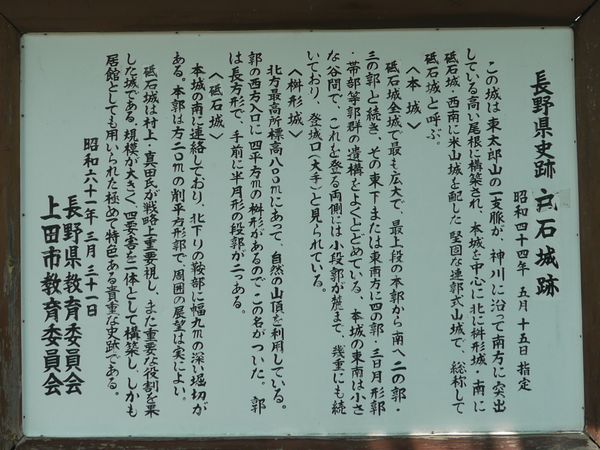 長野県史跡 戸石城跡
昭和四十四年 五月 十五日 指定
この城は東太郎山の一支脈が、神川に沿って南方に突出
している高い尾根に構築され、本城を中心に北に桝形城・南に
砥石城、西南に米山城を配した堅固な連郭式山城で、総称して
砥石城と呼ぶ。
〈本城〉
砥石城全域で最も広大で、最上段の本郭から南へ二の郭・
三の郭と続き、その東下または東南方に四の郭・三日月形郭
・帯部等郭群の遺構をよくとどめている。本城の東南は小さ
な谷間で、これを登る両側には小段郭が麓まで、幾重にも続
いており、登城口(大手)と見られている。
〈桝形城〉
北方最高所標高八〇〇mにあって、自然の山頂を利用している。
郭の西方入口に四平方mの桝形があるのでこの名がついた。郭
は長方形で、手前に半月形の段郭が二つある。
〈砥石城〉
本城の南に連絡しており、北下りの鞍部に幅九mの深い堀切が
ある。本郭は方二〇mの削平方形郭で、周囲の展望は実によい。
砥石城は村上・真田氏が戦略上重要視し、また重要な役割を果
した城である。規模が大きく、四要害を一体として構築し、しかも
居館としても用いられた極めて特色ある貴重な史跡である。
昭和六十一年 三月 三十一日
長野県教育委員会
上田市教育委員会